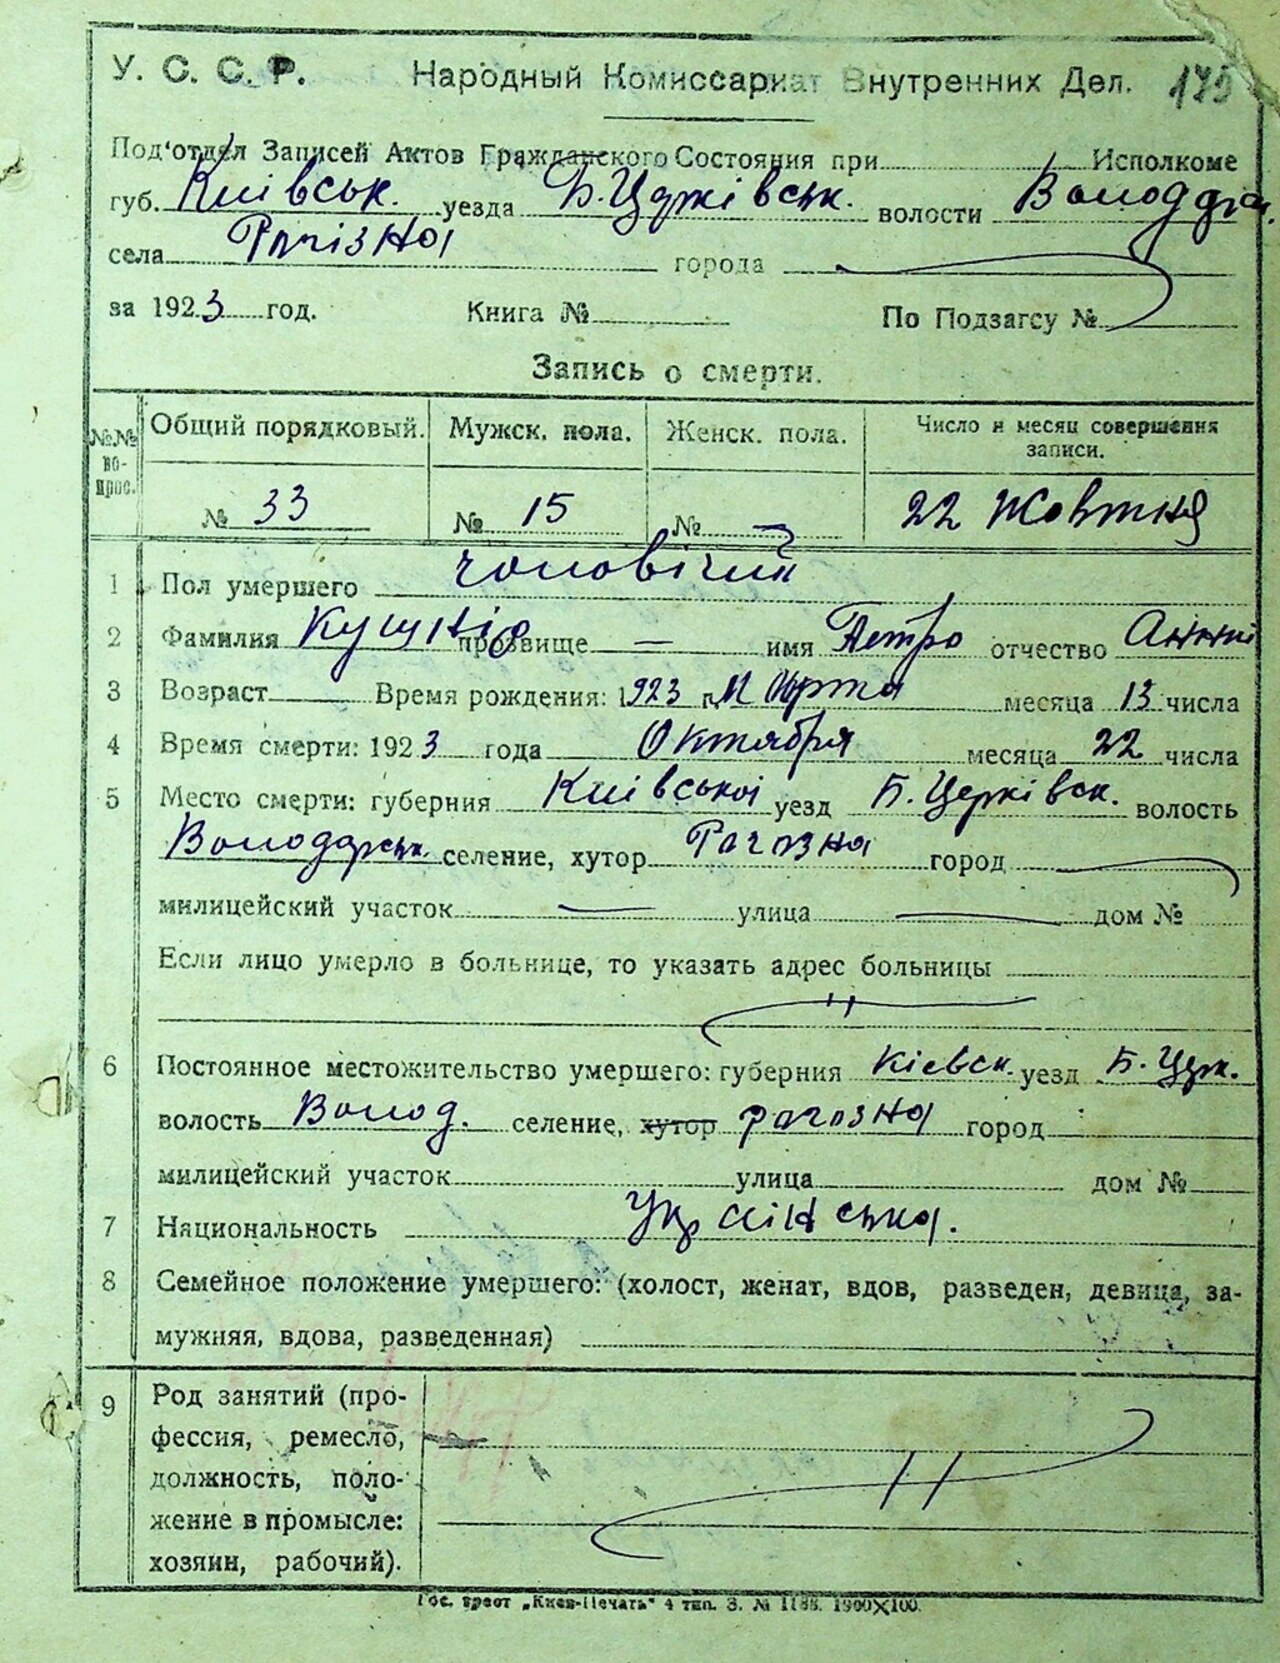 У. С. С. Р. Народный Комиссариат Внутренних Дел. 175
Под'отдел Записей Актов Гражданского Состояния при Исполкоме
губ. Киівськ. уезда Б. Церківськ. волости Володар.
села Рогізна города
за 1923 год. Книга № По Подзагсу №
Запись о смерти.
№№ вопрос. Общий порядковый. Мужск. пола. Женск. пола. Число и месяц совершения записи.
№ 33 № 15 № 22 Жовтня
1 Пол умершего чоловічий
2 Фамилия Кушнір прозвище — имя Петро отчество
3 Возраст Время рождения: 1923 г. Марта месяца 13 числа
4 Время смерти: 1923 года Октября месяца 22 числа
5 Место смерти: губерния Киівськоі уезд Б. Церківськ. волость
Володарськ. селение, хутор Рогозна город
милицейский участок — улица — дом №
Если лицо умерло в больнице, то указать адрес больницы
6 Постоянное местожительство умершего: губерния Кіевск. уезд Б. Церк.
волость Волод. селение, хутор рогозна город
милицейский участок улица дом №
7 Национальность Украінська.
8 Семейное положение умершего: (холост, женат, вдов, разведен, девица, за-
мужняя, вдова, разведенная)
9 Род занятий (про-
фессия, ремесло,
должность, поло-
жение в промысле:
хозяин, рабочий).
Гос. трест „Киев-Печать" 4 тип. З. № 1188. 1900×100.